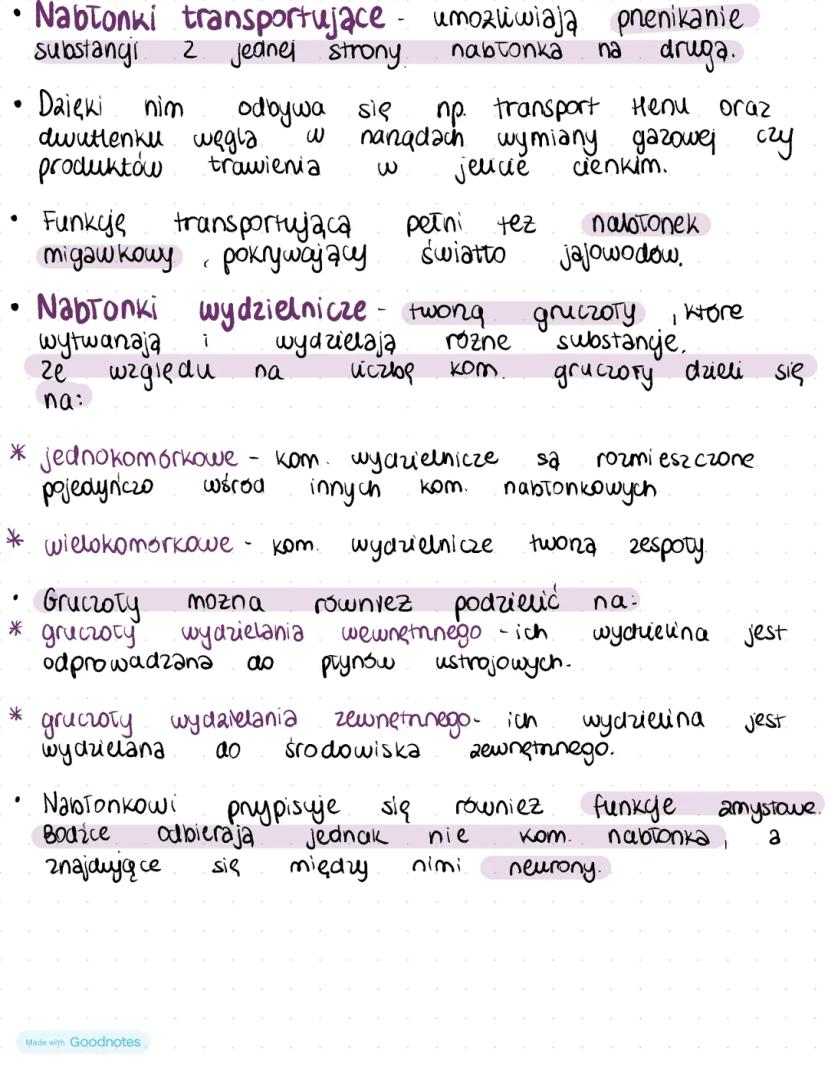 • Nabłonki transportujące - umożliwiają przenikanie
substancji z jednej strony nabłonka na drugą.
• Dzięki nim odbywa się np. transport tlenu oraz
dwutlenku węgla w narządach wymiany gazowej czy
produktów trawienia w jelicie cienkim.
• Funkcję transportującą pełni też nabłonek
migawkowy, pokrywający światło jajowodów.
• Nabłonki wydzielnicze - tworzą gruczoły, które
wytwarzają i wydzielają różne substancje.
Ze względu na liczbę kom. gruczoły dzieli się
na:
* jednokomórkowe - kom. wydzielnicze są rozmieszczone
pojedyńczo wśród innych kom. nabłonkowych
* wielokomórkowe - kom. wydzielnicze tworzą zespoły
• Gruczoły można również podzielić na:
* gruczoły wydzielania wewnętrznego - ich wydzielina jest
odprowadzana do płynów ustrojowych.
* gruczoły wydzielania zewnętrznego- ich wydzielina jest
wydzielana do środowiska zewnętrznego.
• Nabłonkowi przypisuje się również funkcje zmysłowe.
Bodźce odbierają jednak nie kom. nabłonka, a
znajdujące się między nimi neurony.
Made with Goodnotes